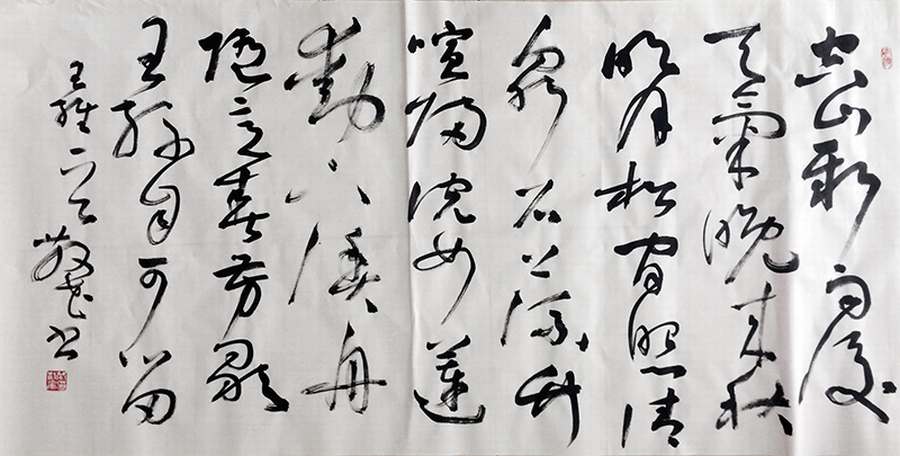 空山新雨後
天氣晚来秋
明月松間照清
泉石上流竹
喧歸浣女蓮
動下漁舟
随意春芳歇
王孫自可留
王維 书